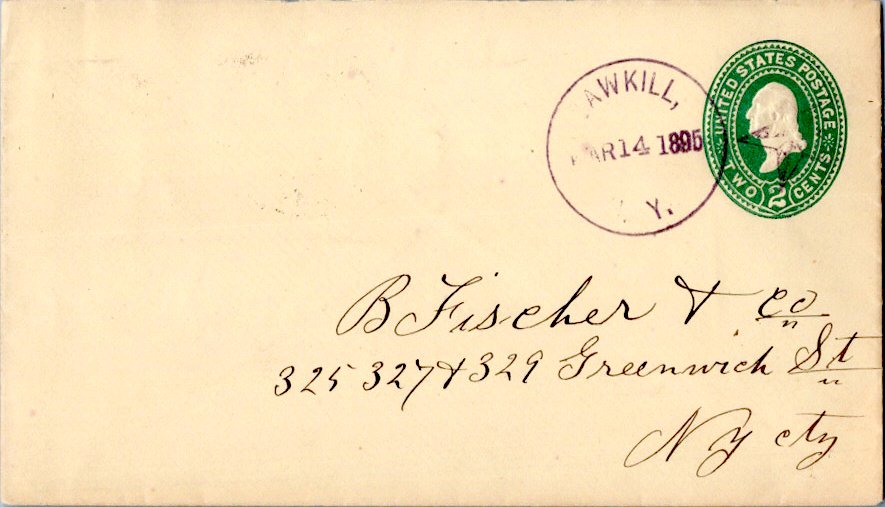 AWKILL,
AR 14 1895
Y.
UNITED STATES POSTAGE
TWO 2 CENTS
B Fischer & Co
325 327 & 329 Greenwich St
NY cty